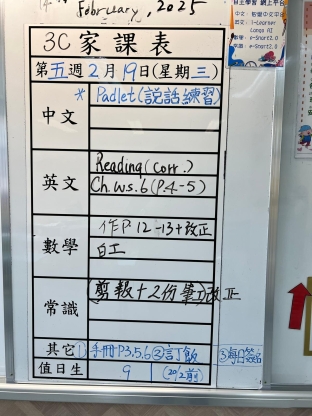 February, 2025
自主學習 網上平台
3C 家課表
第五週2月19日(星期三)
中文
* Padlet(說話練習)
英文
Reading (corr.)
Ch.ws.6 (P.4-5)
數學
作P.12-13+改正
白工
常識
(剪報+2份筆)改正
其它
①手冊P3.5.6 ②訂飯 ③每日簽名
值日生
9
(20/2前)